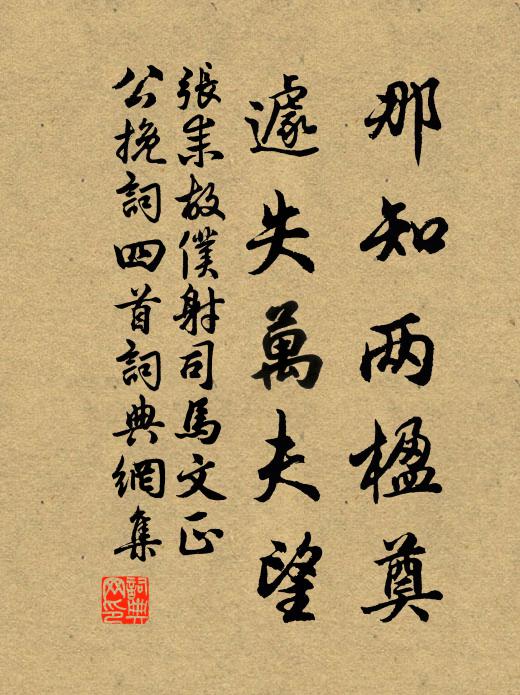 那知两楹奠
遽失萬夫望
張耒故僕射司馬文正
公挽詞四首詞典網集
詞典网印